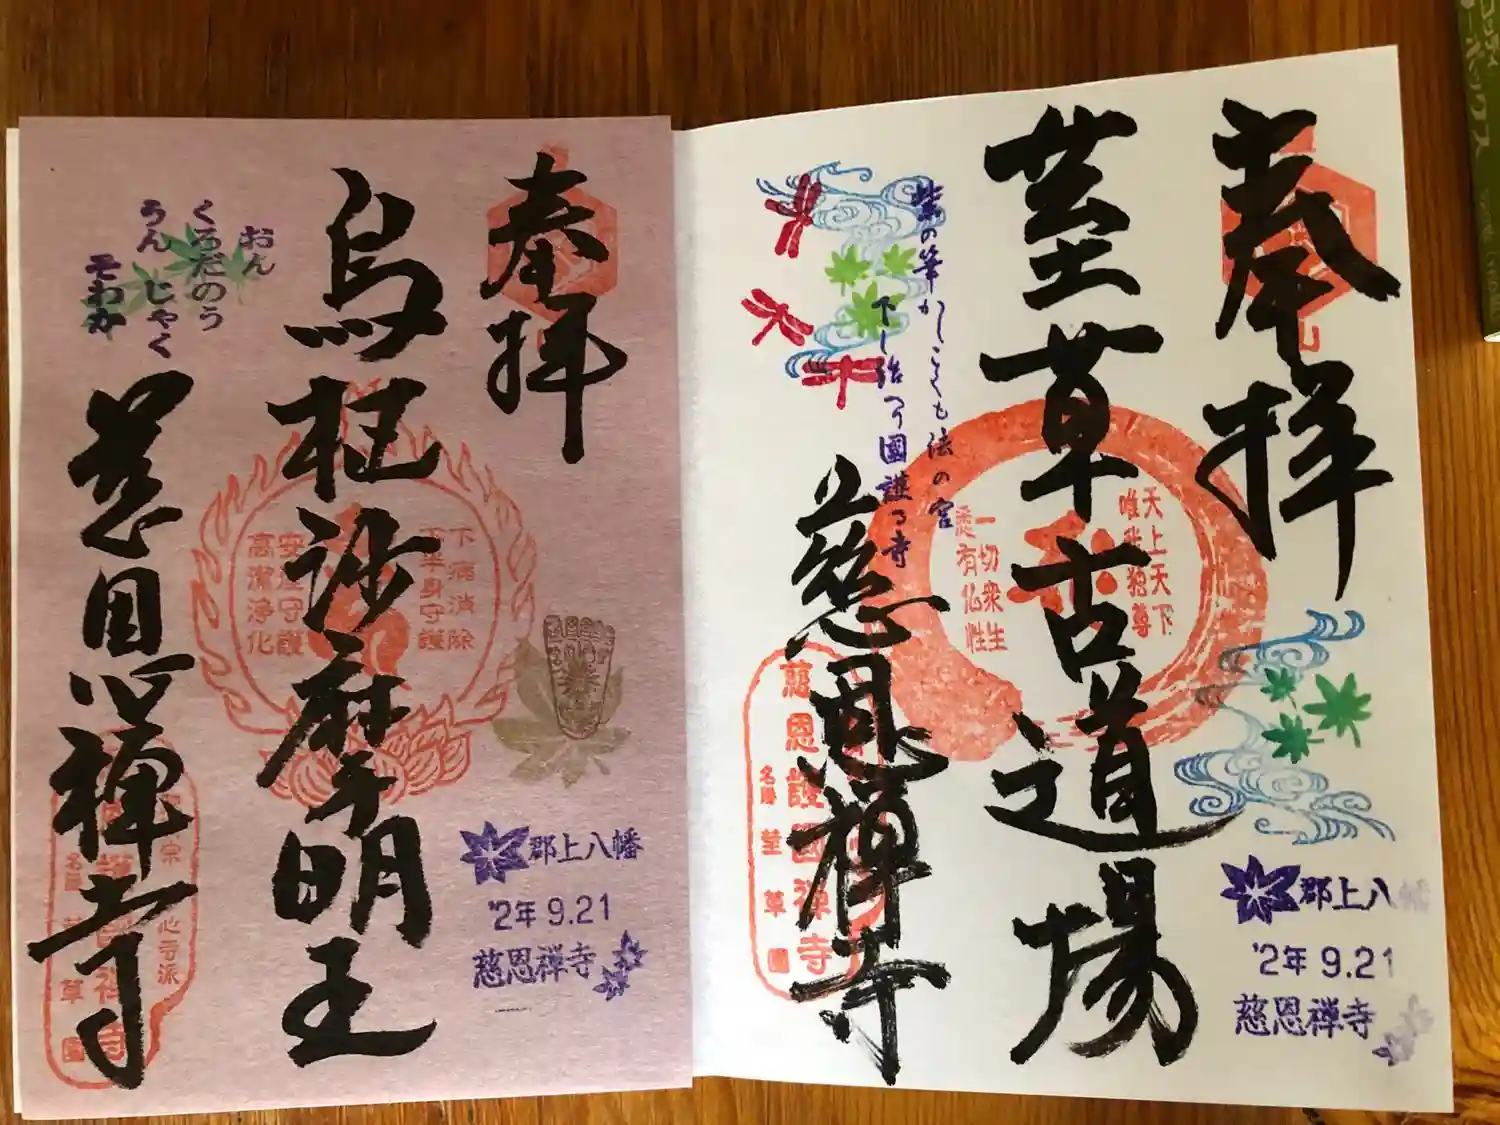 奉拝
荎草古道場
慈恩禅寺
紫の筆かしこくも法の宮
下し給へり國護る寺
天上天下
唯我独尊
一切衆生
悉有化性
慈恩護國禅寺
名勝 荎草園
郡上八幡
'2年 9.21
慈恩禅寺
奉拝
烏枢沙摩明王
慈恩禅寺
おん
くろだのう
うん じゃく
そわか
下病消除
下半身守護
安産守護
高潔浄化
郡上八幡
'2年 9.21
慈恩禅寺